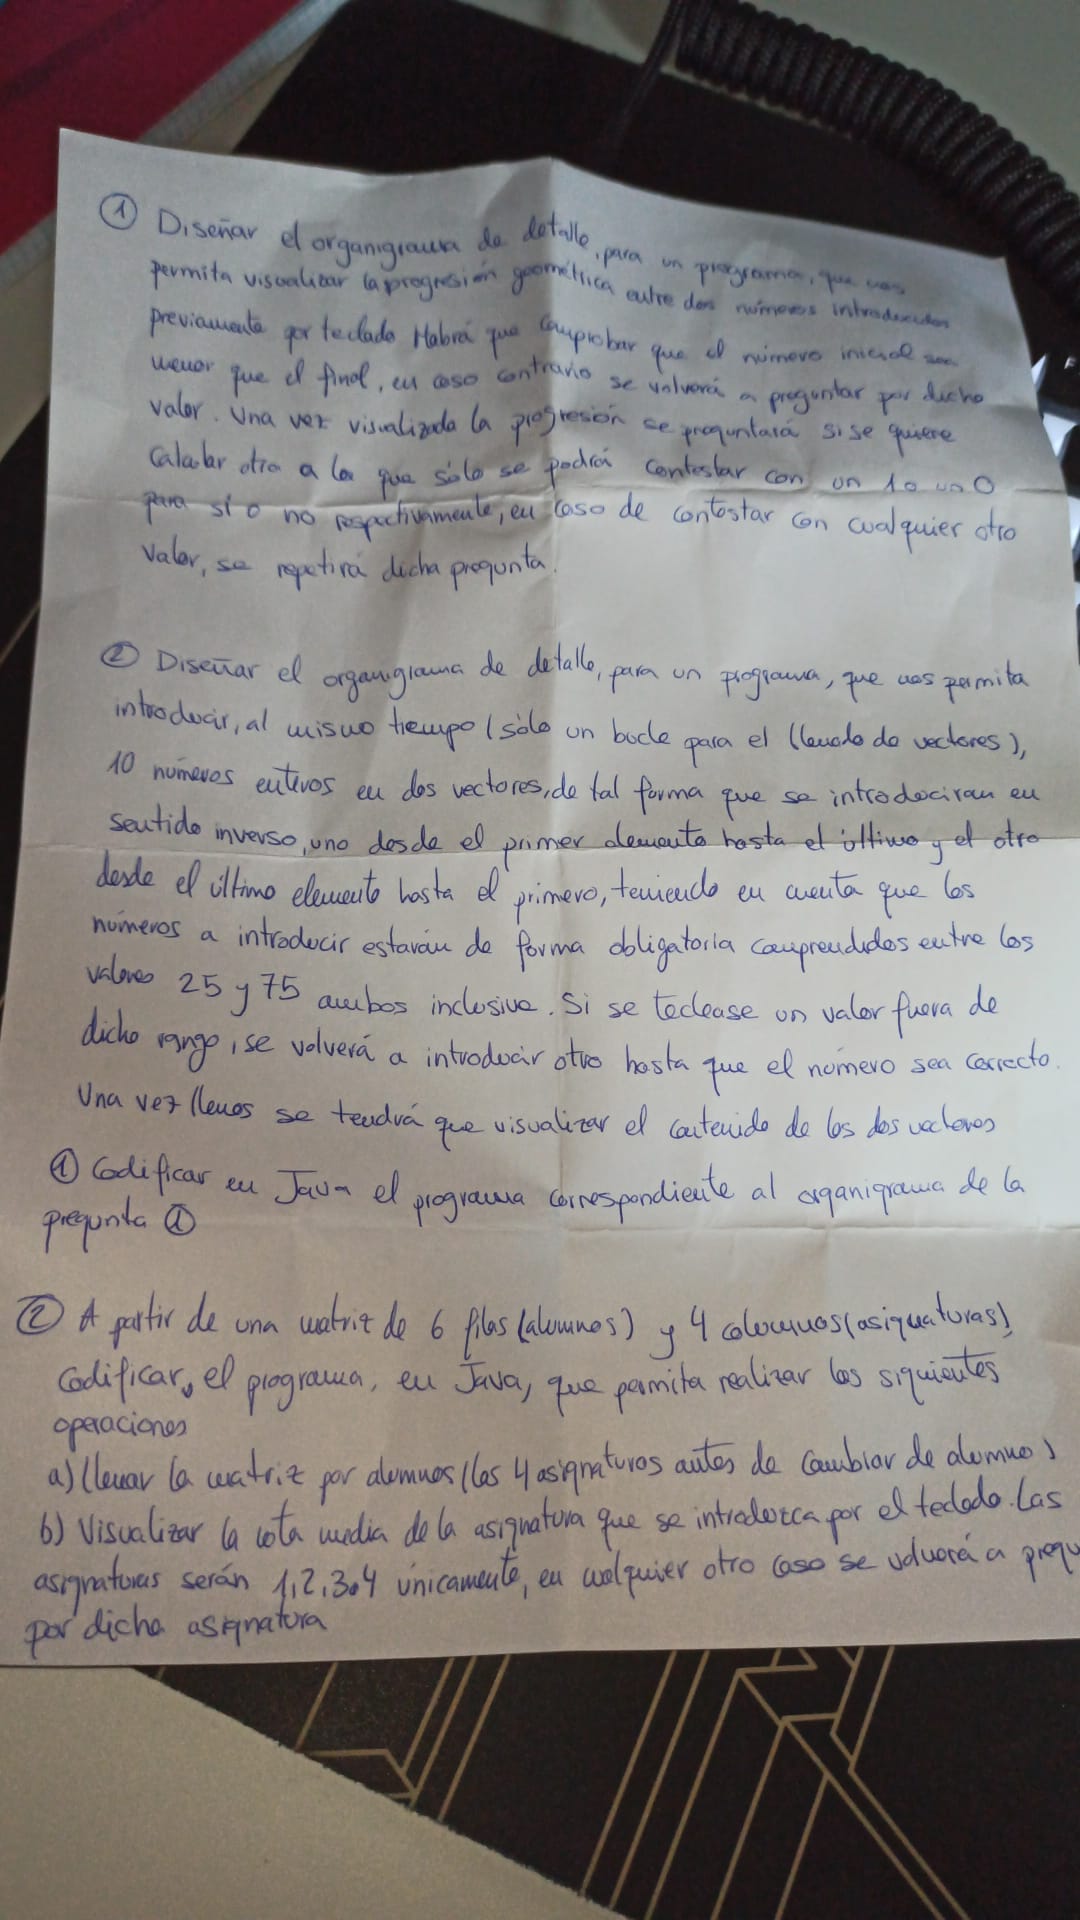 ① Diseñar el organigrama de detalle, para un programa, que nos
permita visualizar la progresión geométrica entre dos números introducidos
previamente por teclado Habrá que comprobar que el número inicial sea
menor que el final, en caso contrario se volverá a preguntar por dicho
valor. Una vez visualizada la progresión se preguntará si se quiere
Calcular otra a la que sólo se podrá contestar con un 1 o un 0
para sí o no respectivamente, en caso de contestar con cualquier otro
valor, se repetirá dicha pregunta.
② Diseñar el organigrama de detalle, para un programa, que nos permita
introducir, al mismo tiempo (sólo un bucle para el llenado de vectores),
10 números enteros en dos vectores, de tal forma que se introduciran en
sentido inverso, uno desde el primer elemento hasta el último y el otro
desde el último elemento hasta el primero, teniendo en cuenta que los
números a introducir estarán de forma obligatoria comprendidos entre los
valores 25 y 75 ambos inclusive. Si se teclease un valor fuera de
dicho rango, se volverá a introducir otro hasta que el número sea correcto.
Una vez llenos se tendrá que visualizar el contenido de los dos vectores
① Codificar en Java el programa correspondiente al organigrama de la
pregunta ①
② A partir de una matriz de 6 filas (alumnos) y 4 columnas (asignaturas),
Codificar, el programa, en Java, que permita realizar las siguientes
operaciones
a) llenar la matriz por alumnos (las 4 asignaturas antes de cambiar de alumno)
b) Visualizar la nota media de la asignatura que se introduzca por el teclado. Las
asignaturas serán 1, 2, 3 o 4 únicamente, en cualquier otro caso se volverá a pregu
por dicha asignatura